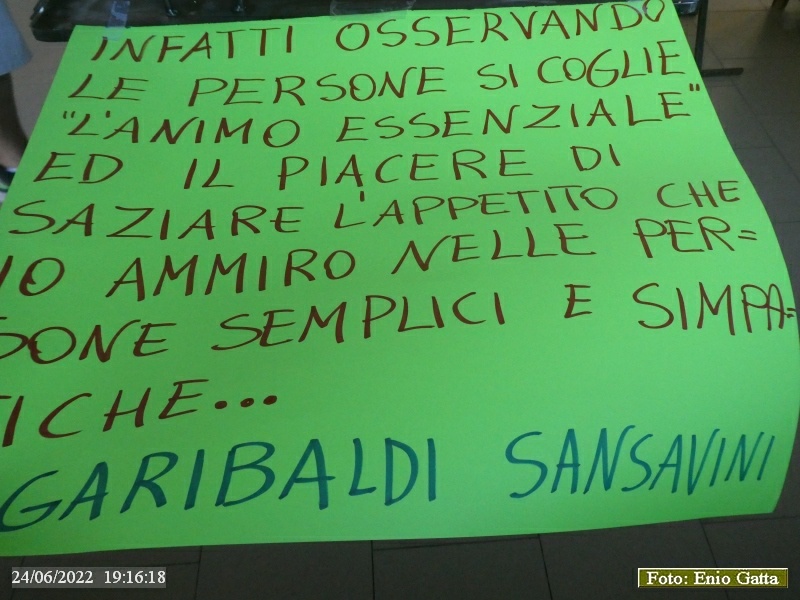 INFATTI OSSERVANDO
LE PERSONE SI COGLIE
"L'ANIMO ESSENZIALE"
ED IL PIACERE DI
SAZIARE L'APPETITO CHE
IO AMMIRO NELLE PER=
SONE SEMPLICI E SIMPA=
TICHE...
GARIBALDI SANSAVINI
24/06/2022 19:16:18
Foto: Enio Gatta